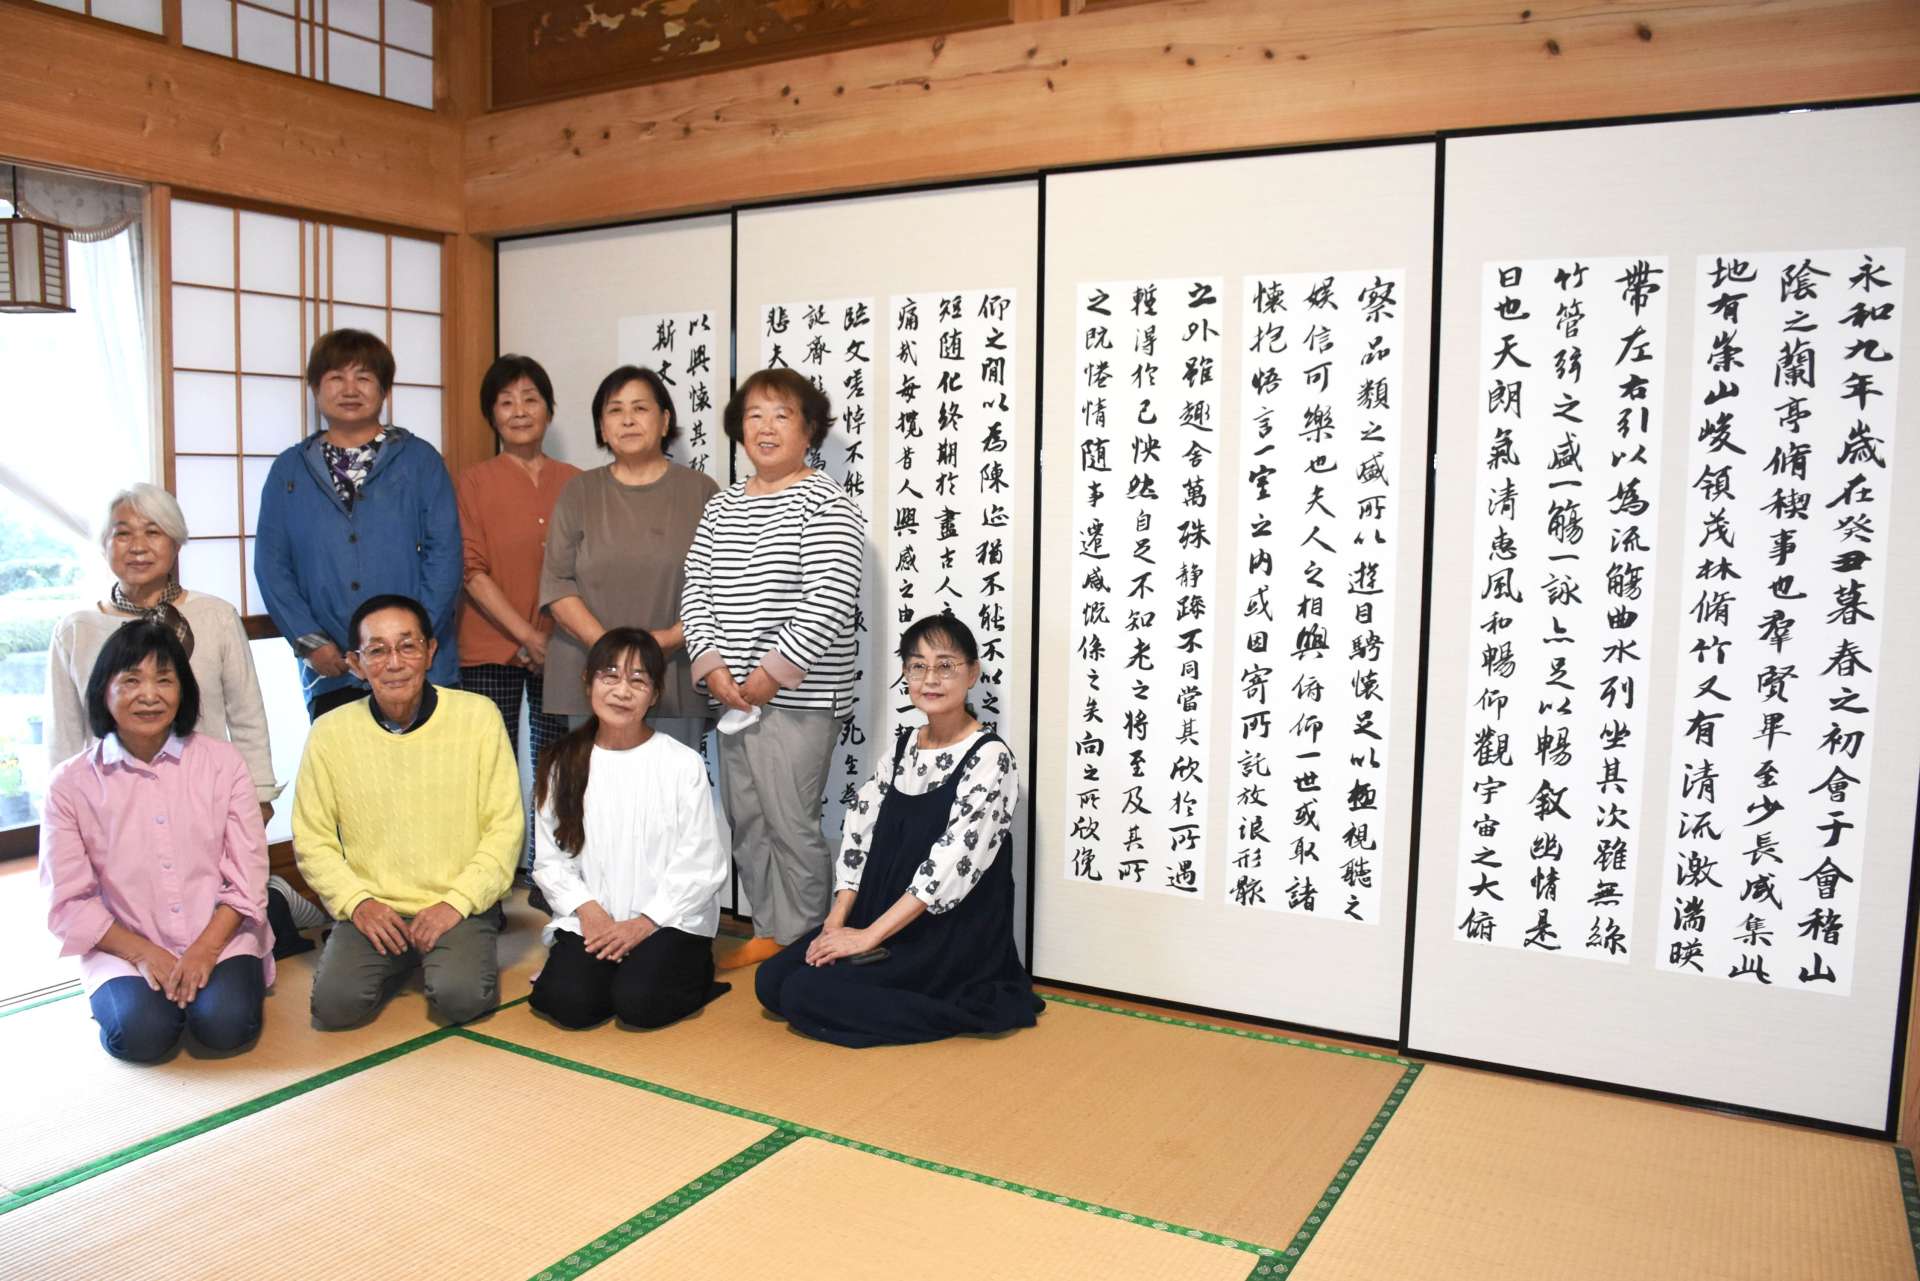 永和九年歳在癸丑暮春之初會于會稽山
陰之蘭亭脩稧事也羣賢畢至少長咸集此
地有崇山峻領茂林脩竹又有清流激湍暎
帶左右引以為流觴曲水列坐其次雖無絲
竹管弦之盛一觴一詠亦足以暢敘幽情是
日也天朗氣清惠風和暢仰觀宇宙之大俯
察品類之盛所以遊目騁懷足以極視聽之
娛信可樂也夫人之相與俯仰一世或取諸
懷抱悟言一室之内或因寄所託放浪形骸
之外雖趣舍萬殊静躁不同當其欣於所遇
輊得於己怏然自足不知老之將至及其所
之既惓情随事遷感慨係之矣向之所欣俛
仰之閒以為陳迹猶不能不以之興
短随化終期於盡古人
痛哉每攬昔人興感之由 合一
臨文嗟悼不能 一死生為
誕齊 為
悲夫
以興懷其致
斯文